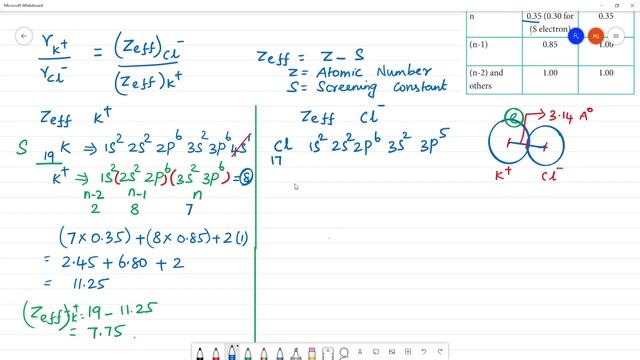 Microsoft Whiteboard
n 0.35 (0.30 for 0.35
(S electron)
(n-1) 0.85 1.00
(n-2) and 1.00 1.00
others
PG
rK+ / rCl- = (Zeff)Cl- / (Zeff)K+
Zeff = Z - S
Z = Atomic Number
S = Screening Constant
3.14 A°
K+ Cl-
Zeff K+
S 19 K ⇒ 1s² 2s² 2p⁶ 3s² 3p⁶ 4s¹
K+ ⇒ 1s² (2s² 2p⁶) (3s² 3p⁶) = 8
n-2 n-1 n
2 8 7
(7 x 0.35) + (8 x 0.85) + 2(1)
= 2.45 + 6.80 + 2
= 11.25
(Zeff)K+ = 19 - 11.25
= 7.75
Zeff Cl-
Cl 1s² 2s² 2p⁶ 3s² 3p⁵
17